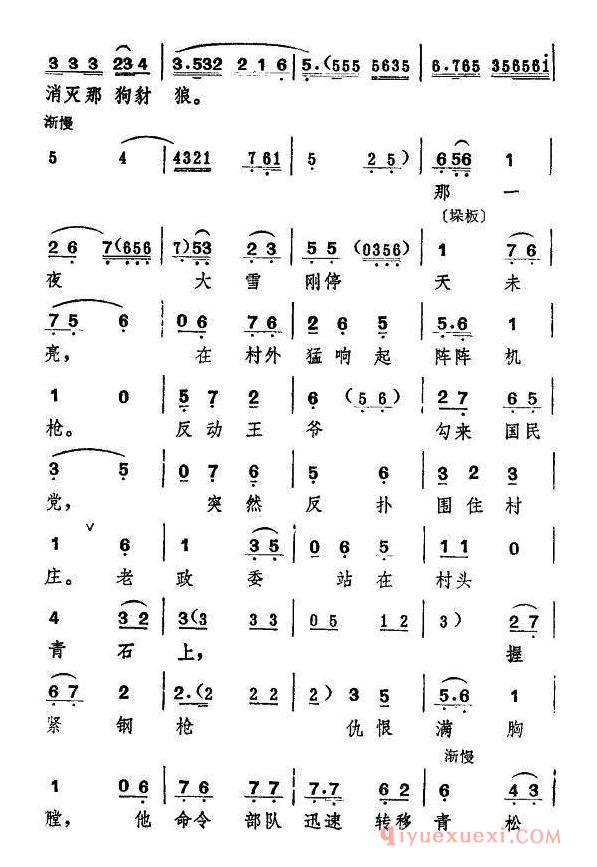 3 3 3 234 | 3.532 2 1 6 | 5.(555 5635 | 6.765 356561̇ |
消灭那狗豺 狼。
渐慢
5 4 | 4321 761 | 5 25) | 656 1 |
那 一
〔垛板〕
26 7(656 | 7)53 23 | 55 (0356) | 1 76 |
夜 大 雪 刚停 天 未
75 6 | 06 76 | 2 6 5 | 5.6 1 |
亮， 在 村外 猛响起 阵阵 机
1 0 | 5 7 2 | 6 (56) | 27 65 |
枪。 反动王 爷 勾来 国民
3 5 | 07 6 | 5 6 | 3 2 3 |
党， 突然 反 扑 围住村
1 ∨ 6 | 1 35 | 06 5 | 11 0 |
庄。老 政 委 站在 村头
4 32 | 3(3 33 | 05 12 | 3) 27 |
青 石 上， 握
67 2 | 2.(2 22 | 2) 3 5 | 5.6 1 |
紧 钢 枪 仇恨 满 胸
渐慢
1 06 | 76 77 | 7.7 62 | 6 43 |
膛， 他 命令 部队 迅速 转移 青 松
qiyuexuexi.com